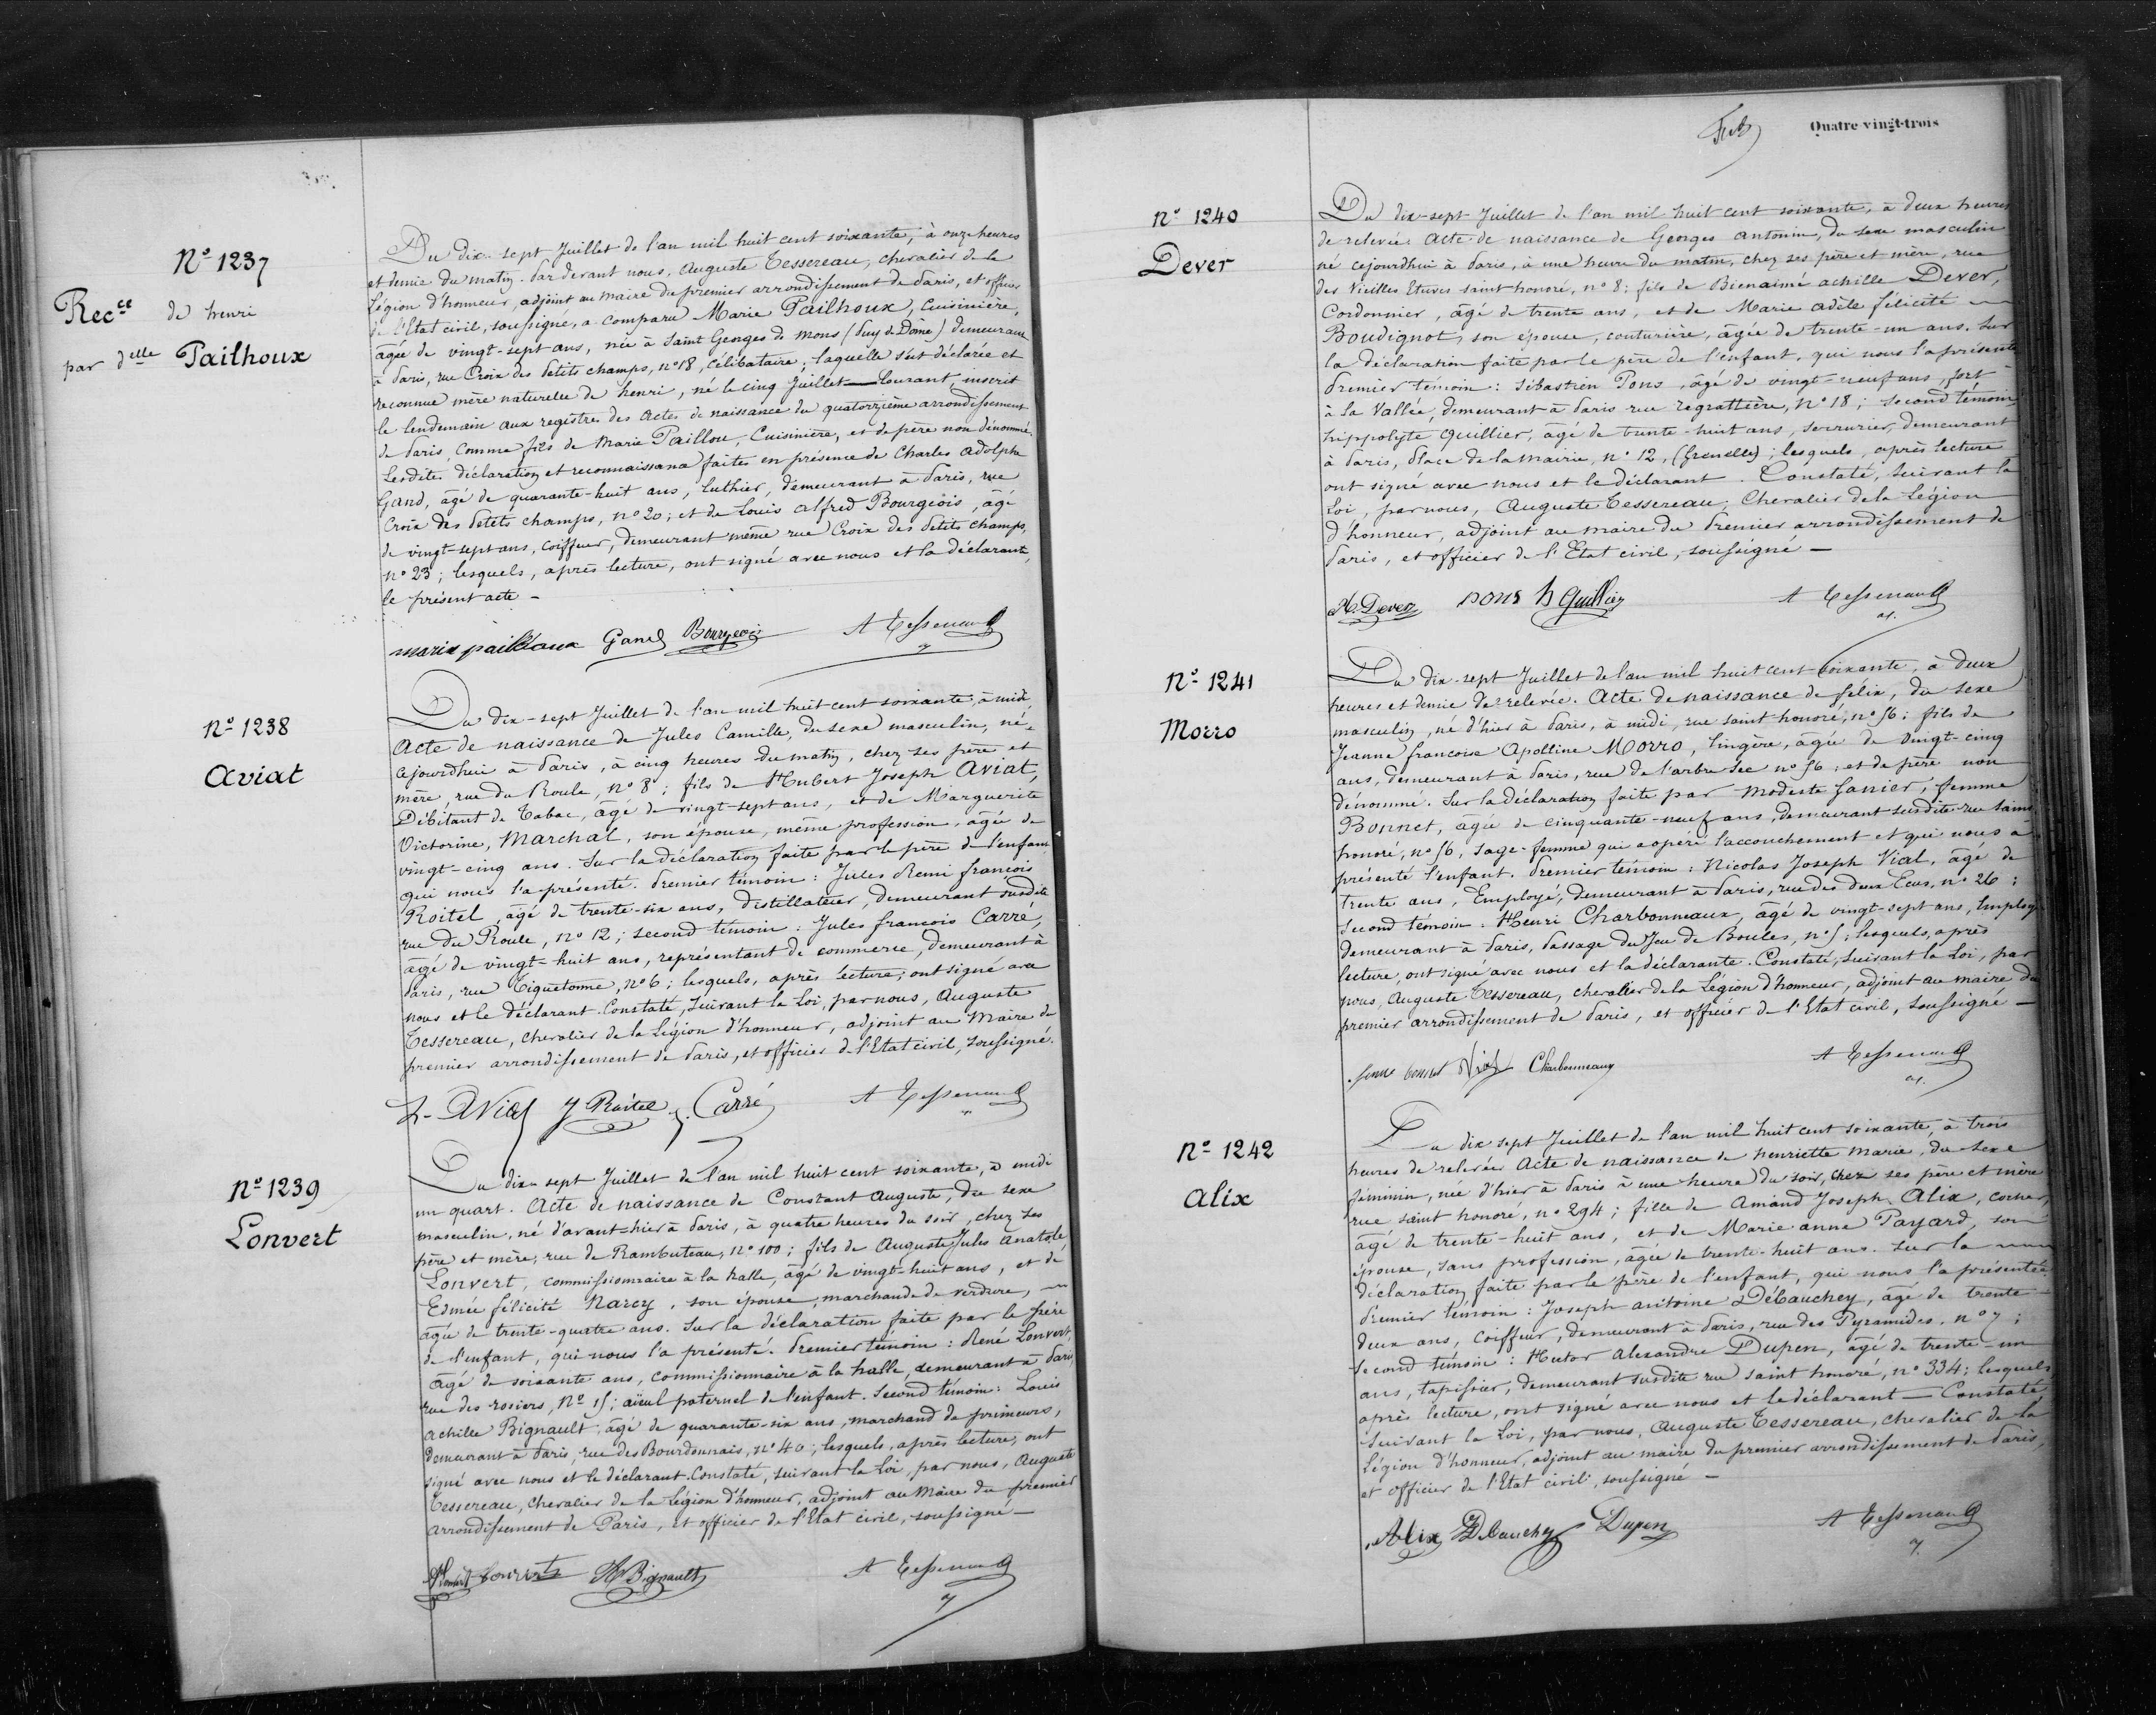 N° 1237
Rec.ce de henri
par d.elle Pailhoux
Du dix-sept Juillet de l'an mil huit cent soixante, à onze heures
et demie du matin. Par devant nous, Auguste Tessereau, chevalier de la
Légion d'honneur, adjoint au maire du premier arrondissement de Paris, et officier
de l'Etat civil, soussigné, a comparu Marie Pailhoux, Cuisinière,
âgée de vingt-sept ans, née à Saint Georges de Mons (Puy de Dôme) demeurant
à Paris, rue Croix des Petits champs, n° 18, célibataire; laquelle s'est déclarée et
reconnue mère naturelle de henri, né le cinq Juillet Courant, inscrit
le lendemain aux registres des Actes de naissance du quatorzième arrondissement
de Paris, comme fils de Marie Paillou, Cuisinière, et de père non dénommé.
Lesdites déclaration et reconnaissance faites en présence de Charles Adolphe
Gand, âgé de quarante-huit ans, luthier, demeurant à Paris, rue
Croix des Petits champs, n° 20; et de Louis Alfred Bourgeois, âgé
de vingt-sept ans, coiffeur, demeurant même rue Croix des Petits champs,
n° 23; lesquels, après lecture, ont signé avec nous et la déclarante,
le présent acte —
marie pailhoux Gand Bourgeois A Tessereau
N° 1238
Aviat
Du dix-sept Juillet de l'an mil huit cent soixante, à midi
Acte de naissance de Jules Camille, du sexe masculin, né
cejourdhui à Paris, à cinq heures du matin, chez ses père et
mère, rue du Roule, n° 8; fils de Hubert Joseph Aviat,
Débitant de Tabac, âgé de vingt-sept ans, et de Marguerite
Victorine, Marchal, son épouse, même profession, âgée de
vingt-cinq ans. Sur la déclaration faite par le père de l'enfant
qui nous l'a présenté. Premier témoin: Jules Remi françois
Roitel, âgé de trente-six ans, distillateur, demeurant susdite
rue du Roule, n° 12; second témoin: Jules francois Carré,
âgé de vingt-huit ans, représentant de commerce, demeurant à
Paris, rue Tiquetonne, n° 6; lesquels, après lecture, ont signé avec
nous et le déclarant. Constaté, Suivant la Loi, par nous, Auguste
Tessereau, chevalier de la Légion d'honneur, adjoint au Maire du
premier arrondissement de Paris, et officier de l'Etat civil, soussigné.
h. Aviat J Roitel J. Carré A Tessereau
N° 1239
Lonvert
Du dix-sept Juillet de l'an mil huit cent soixante, à midi
un quart. Acte de naissance de Constant Auguste, du sexe
masculin, né d'avant-hier à Paris, à quatre heures du soir, chez ses
père et mère, rue de Rambuteau, n° 100; fils de Auguste Jules Anatole
Lonvert, commissionnaire à la halle, âgé de vingt-huit ans, et de
Edmée félicité Narcy, son épouse, marchande de verdure,
âgée de trente-quatre ans. Sur la déclaration faite par le père
de l'enfant, qui nous l'a présenté. Premier témoin: René Lonvert,
âgé de soixante ans, commissionnaire à la halle, demeurant à Paris,
rue des rosiers, N° 15; aïeul paternel de l'enfant. Second témoin: Louis
Achille Bignault, âgé de quarante-six ans, marchand de primeurs,
demeurant à Paris, rue des Bourdonnais, n° 40; lesquels, après lecture, ont
signé avec nous et le déclarant. Constaté, suivant la Loi, par nous, Auguste
Tessereau, chevalier de la Légion d'honneur, adjoint au Maire du premier
arrondissement de Paris, et officier de l'Etat civil, soussigné —
Lonvert Bignault A Tessereau
Quatre vingt-trois
N° 1240
Dever
Du dix-sept Juillet de l'an mil huit cent soixante, à deux heures
de relevée. Acte de naissance de Georges Antonin, du sexe masculin
né cejourdhui à Paris, à une heure du matin, chez ses père et mère, rue
des Vieilles Etuves saint honoré, n° 8; fils de Bienaimé achille Dever,
Cordonnier, âgé de trente ans, et de Marie adèle félicité
Boudignot, son épouse, couturière, âgée de trente-un ans. Sur
la déclaration faite par le père de l'enfant, qui nous l'a présenté
Premier témoin: Sébastien Pons, âgé de vingt-neuf ans, fort
à la Vallée, demeurant à Paris rue regrattière, N° 18; second témoin
hippolyte Quillier, âgé de trente-huit ans, serrurier, demeurant
à Paris, Place de la Mairie, n° 12, (Grenelle); lesquels, après lecture
ont signé avec nous et le déclarant. Constaté, Suivant la
Loi, par nous, Auguste Tessereau, Chevalier de la Légion
d'honneur, adjoint au maire du Premier arrondissement de
Paris, et officier de l'Etat civil, soussigné —
A. Dever pons h Quillier A Tessereau
N° 1241
Morro
Du dix-sept Juillet de l'an mil huit cent soixante, à deux
heures et demie de relevée. Acte de naissance de félix, du sexe
masculin, né d'hier à Paris, à midi, rue saint honoré, n° 56; fils de
Jeanne francoise Apolline Morro, lingère, âgée de vingt-cinq
ans, demeurant à Paris, rue de l'arbre Sec n° 56; et de père non
dénommé. Sur la déclaration faite par Modeste Fanier, femme
Bonnet, âgée de cinquante-neuf ans, demeurant susdite rue Saint
honoré, n° 56, sage-femme qui a opéré l'accouchement et qui nous a
présenté l'enfant. Premier témoin: Nicolas Joseph Vial, âgé de
trente ans, Employé, demeurant à Paris, rue des deux Ecus, n° 26;
Second témoin: Henri Charbonneaux, âgé de vingt-sept ans, Employé
demeurant à Paris, Passage du Jeu de Boules, n° 5; lesquels, après
lecture, ont signé avec nous et la déclarante. Constaté, Suivant la Loi, par
nous, Auguste Tessereau, chevalier de la Légion d'honneur, adjoint au maire du
premier arrondissement de Paris, et officier de l'Etat civil, soussigné —
femme bonnet Vial Charbonneaux A Tessereau
N° 1242
Alix
Du dix sept Juillet de l'an mil huit cent soixante, à trois
heures de relevée Acte de naissance de henriette Marie, du sexe
féminin, née d'hier à Paris à une heure du soir, chez ses père et mère
rue saint honoré, n° 294; fille de Amand Joseph Alix, cocher,
âgé de trente-huit ans, et de Marie anne Payard, son
épouse, sans profession, âgée de trente-huit ans. Sur la
déclaration faite par le père de l'enfant, qui nous l'a présentée
Premier témoin: Joseph antoine Débauchey, âgé de trente
deux ans, Coiffeur, demeurant à Paris, rue des Pyramides, n° 7;
Second témoin: Hector Alexandre Dupen, âgé de trente-un
ans, tapissier, demeurant susdite rue saint honoré, n° 334; lesquels
après lecture, ont signé avec nous et le déclarant — Constaté,
Suivant la Loi, par nous, Auguste Tessereau, chevalier de la
Légion d'honneur, adjoint au maire du premier arrondissement de Paris,
et officier de l'Etat civil, soussigné —
Alix Debauchey Dupen A Tessereau